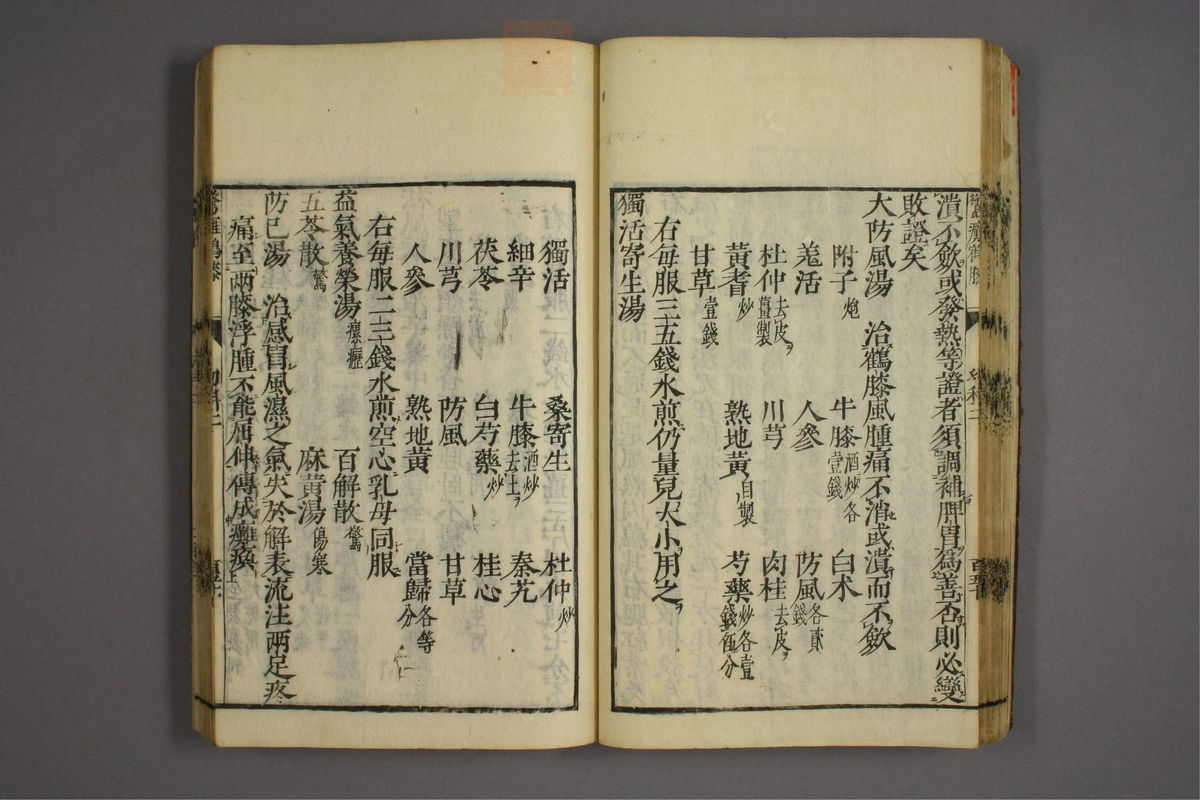 潰不斂或發熱等證者須調補脾胃爲善否則必變
敗證矣
大防風湯 治鶴膝風腫痛不消或潰而不斂
附子炮 牛膝酒炒各壹錢 白术
羗活 人參 防風各貳錢
杜仲去皮薑製 川芎 肉桂去皮
黃耆炒 熟地黃自製 芍藥炒各壹錢伍分
甘草壹錢
右每服三五錢水煎仍量兒大小用之
獨活寄生湯
獨活 桑寄生 杜仲炒
細辛 牛膝酒炒去土 秦艽
茯苓 白芍藥炒 桂心
川芎 防風 甘草
人參 熟地黃 當歸各等分
右每服二三錢水煎空心乳母同服
益氣養榮湯瘰癧 百解散驚
五苓散驚 麻黃湯傷寒
防已湯 治感冒風濕之氣失於解表流注兩足疼
痛至兩膝浮腫不能屈伸傳成癱瘓